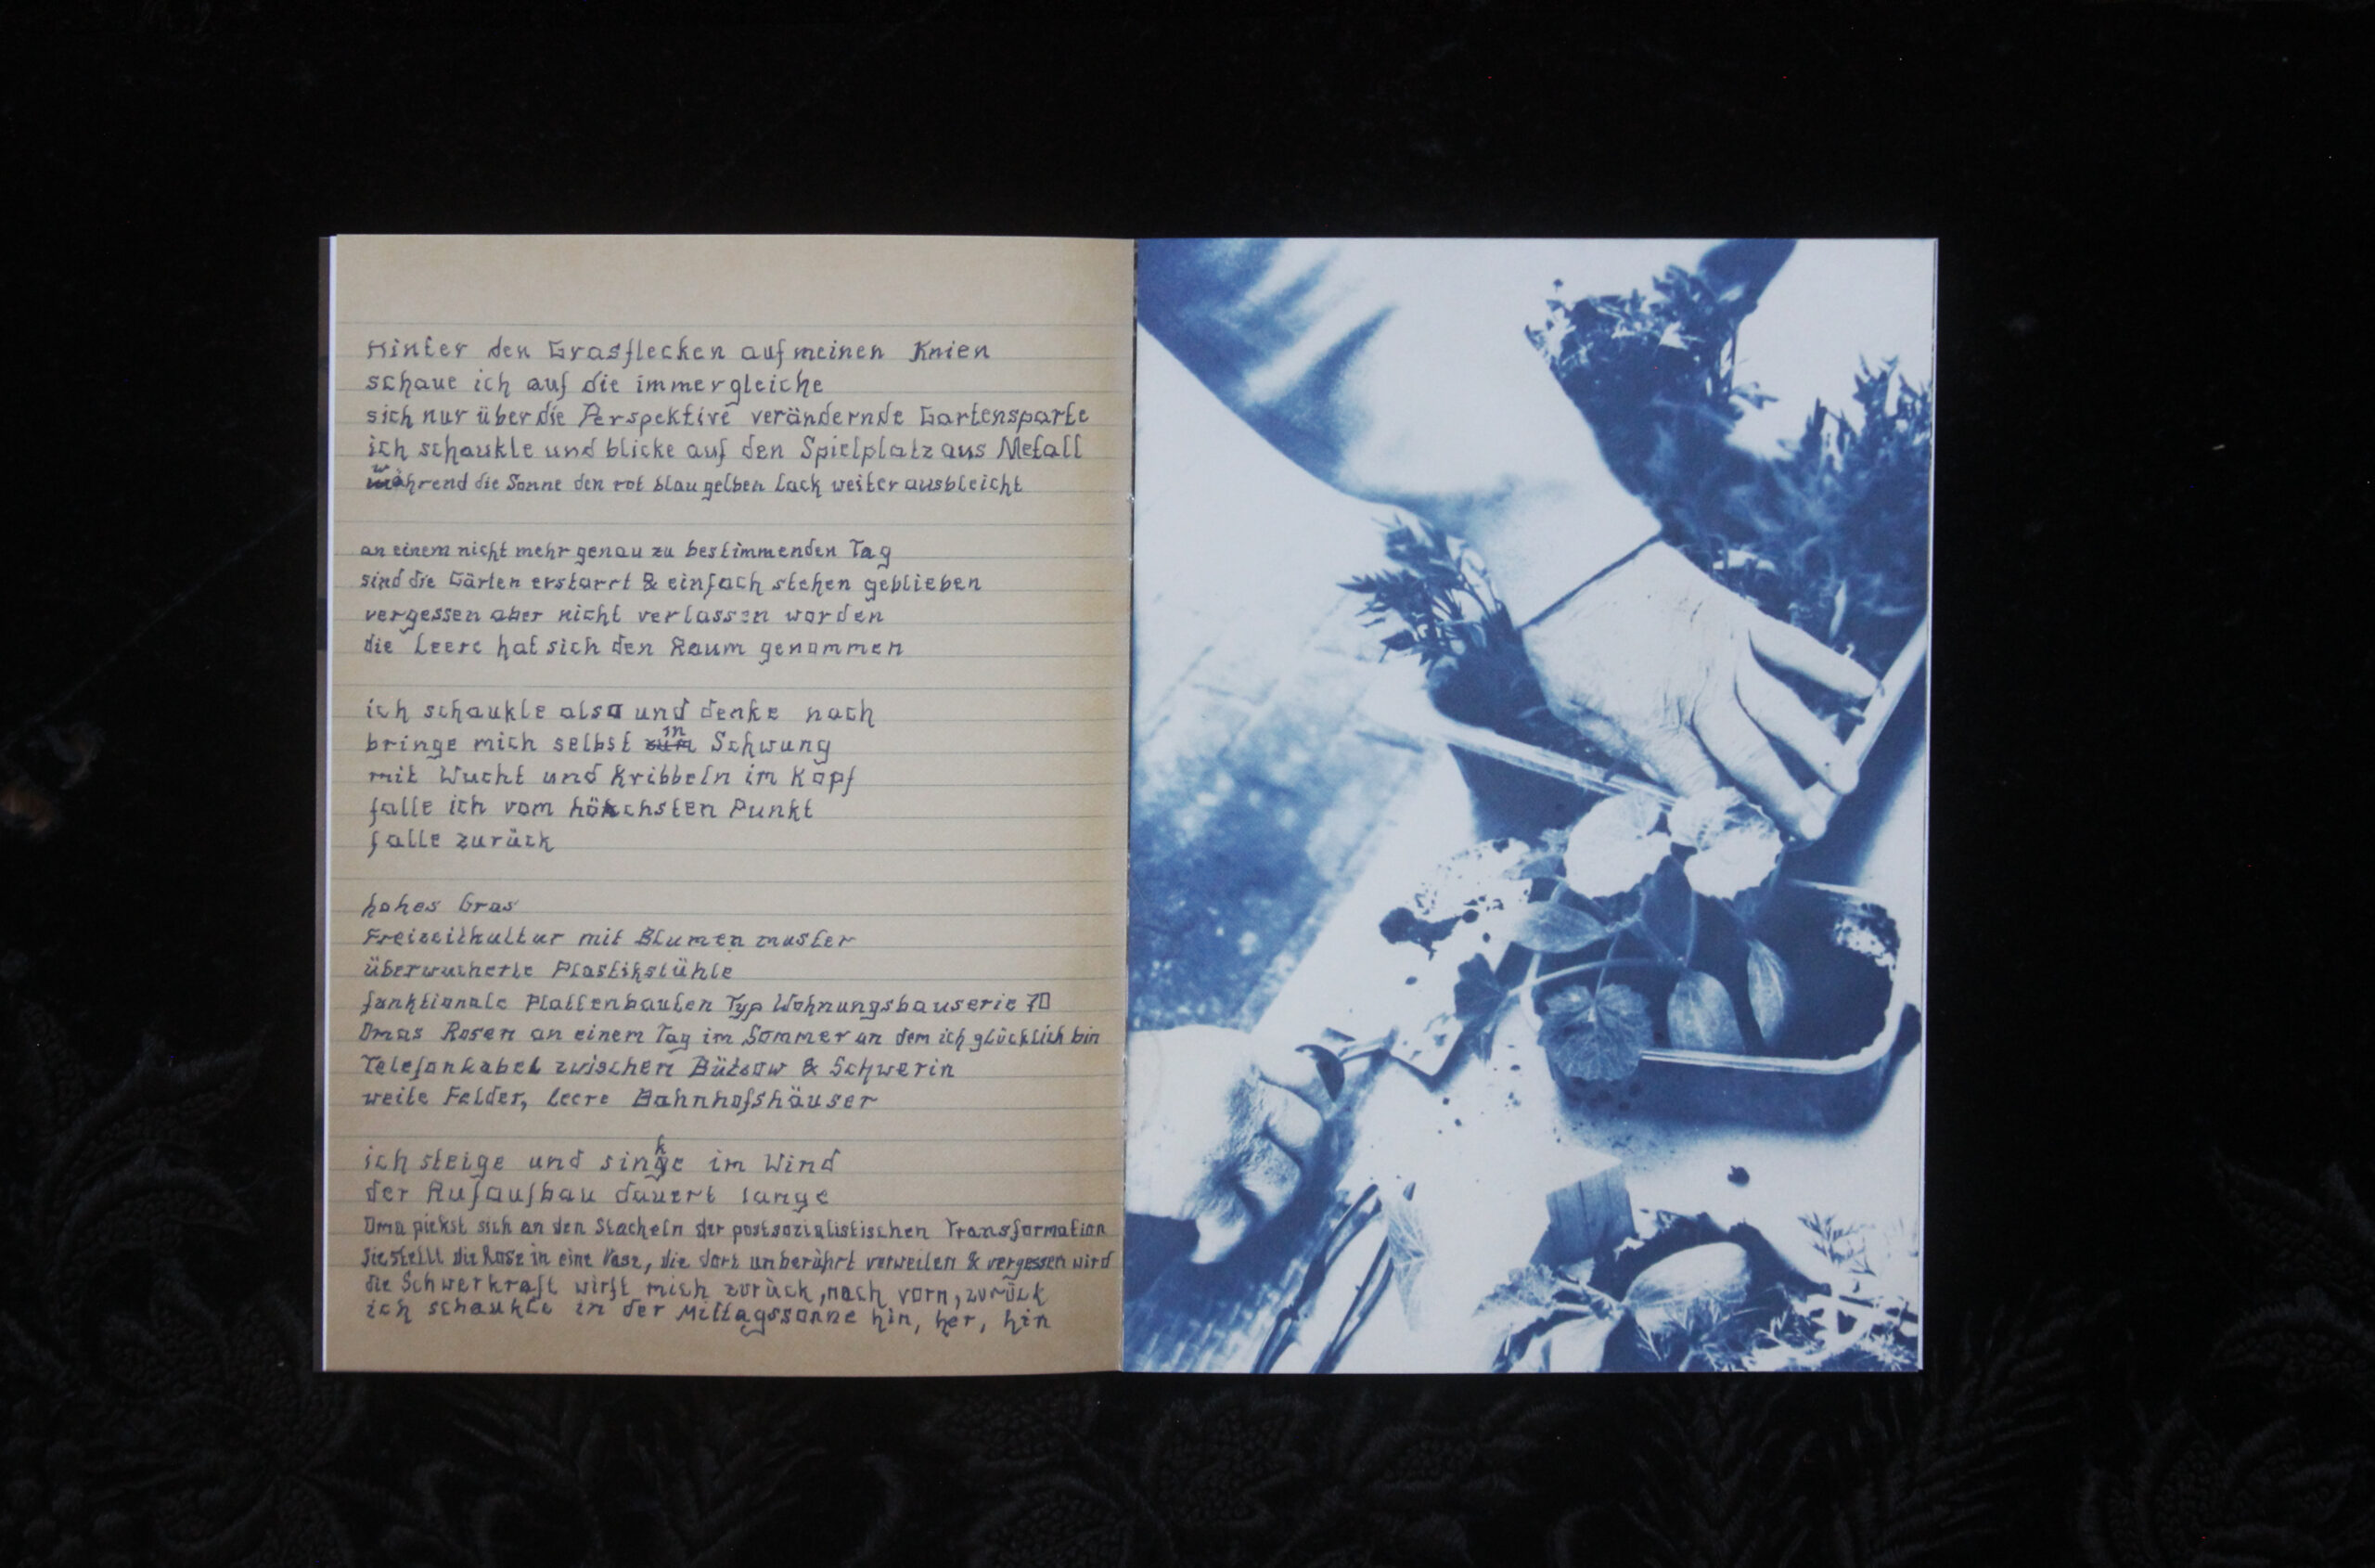 Hinter den Grasflecken auf meinen Knien
schaue ich auf die immergleiche
sich nur über die Perspektive verändernde Gartensparte
ich schaukle und blicke auf den Spielplatz aus Metall
während die Sonne den rot blau gelben Lack weiter ausbleicht
an einem nicht mehr genau zu bestimmenden Tag
sind die Gärten erstarrt & einfach stehen geblieben
vergessen aber nicht verlassen worden
die Leere hat sich den Raum genommen
ich schaukle also und denke nach
bringe mich selbst in Schwung
mit Wucht und Kribbeln im Kopf
falle ich vom höchsten Punkt
falle zurück
hohes Gras
Freizeitkultur mit Blumenmuster
überwucherte Plastikstühle
funktionale Plattenbauten Typ Wohnungsbauserie 70
Omas Rosen an einem Tag im Sommer an dem ich glücklich bin
Telefonkabel zwischen Bützow & Schwerin
weite Felder, leere Bahnhofshäuser
ich steige und sinke im Wind
der Aufaufbau dauert lange
Oma piekst sich an den Stacheln der postsozialistischen Transformation
sie stellt die Rose in eine Vase, die dort unberührt verweilen & vergessen wird
die Schwerkraft wirft mich zurück, nach vorn, zurück
ich schaukle in der Mittagssonne hin, her, hin